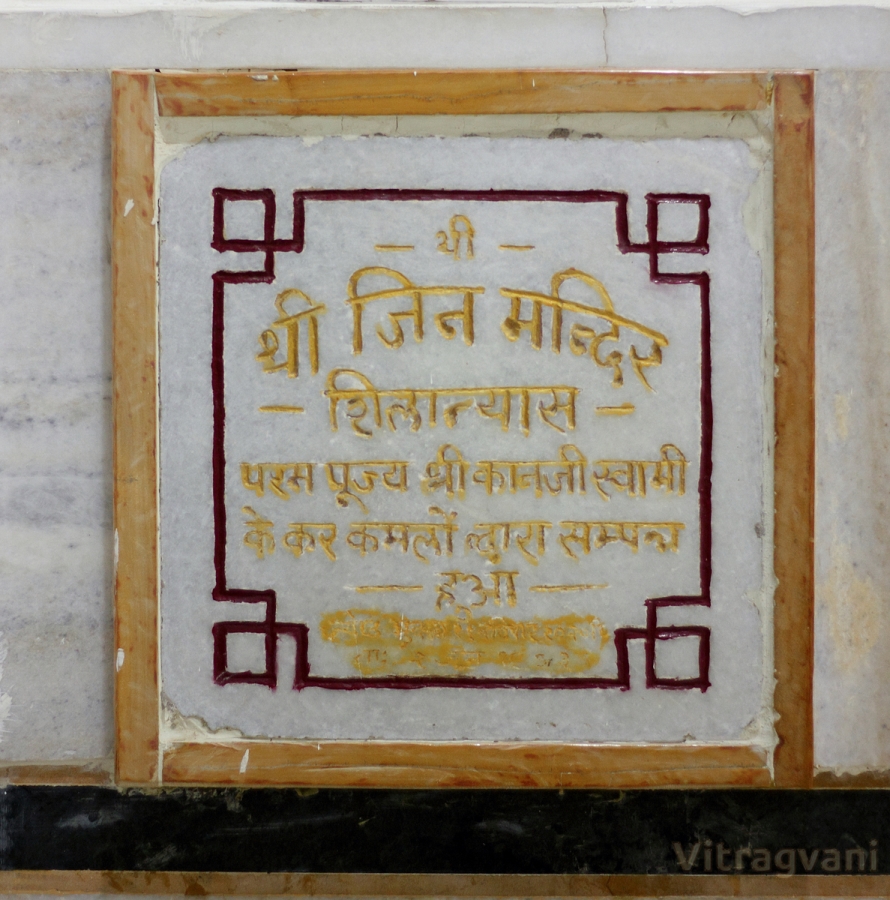 — श्री —
श्री जिन मन्दिर
— शिलान्यास —
परम पूज्य श्री कानजी स्वामी
के कर कमलों द्वारा सम्पन्न
— हुआ —
Vitragvani